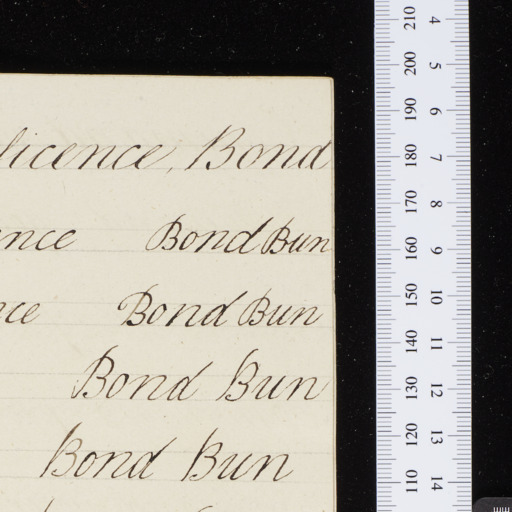 licence, Bond
ence Bond Bun
nce Bond Bun
Bond Bun
Bond Bun
210 200 190 180 170 160 150 140 130 120 110
4 5 6 7 8 9 10 11 12 13 14